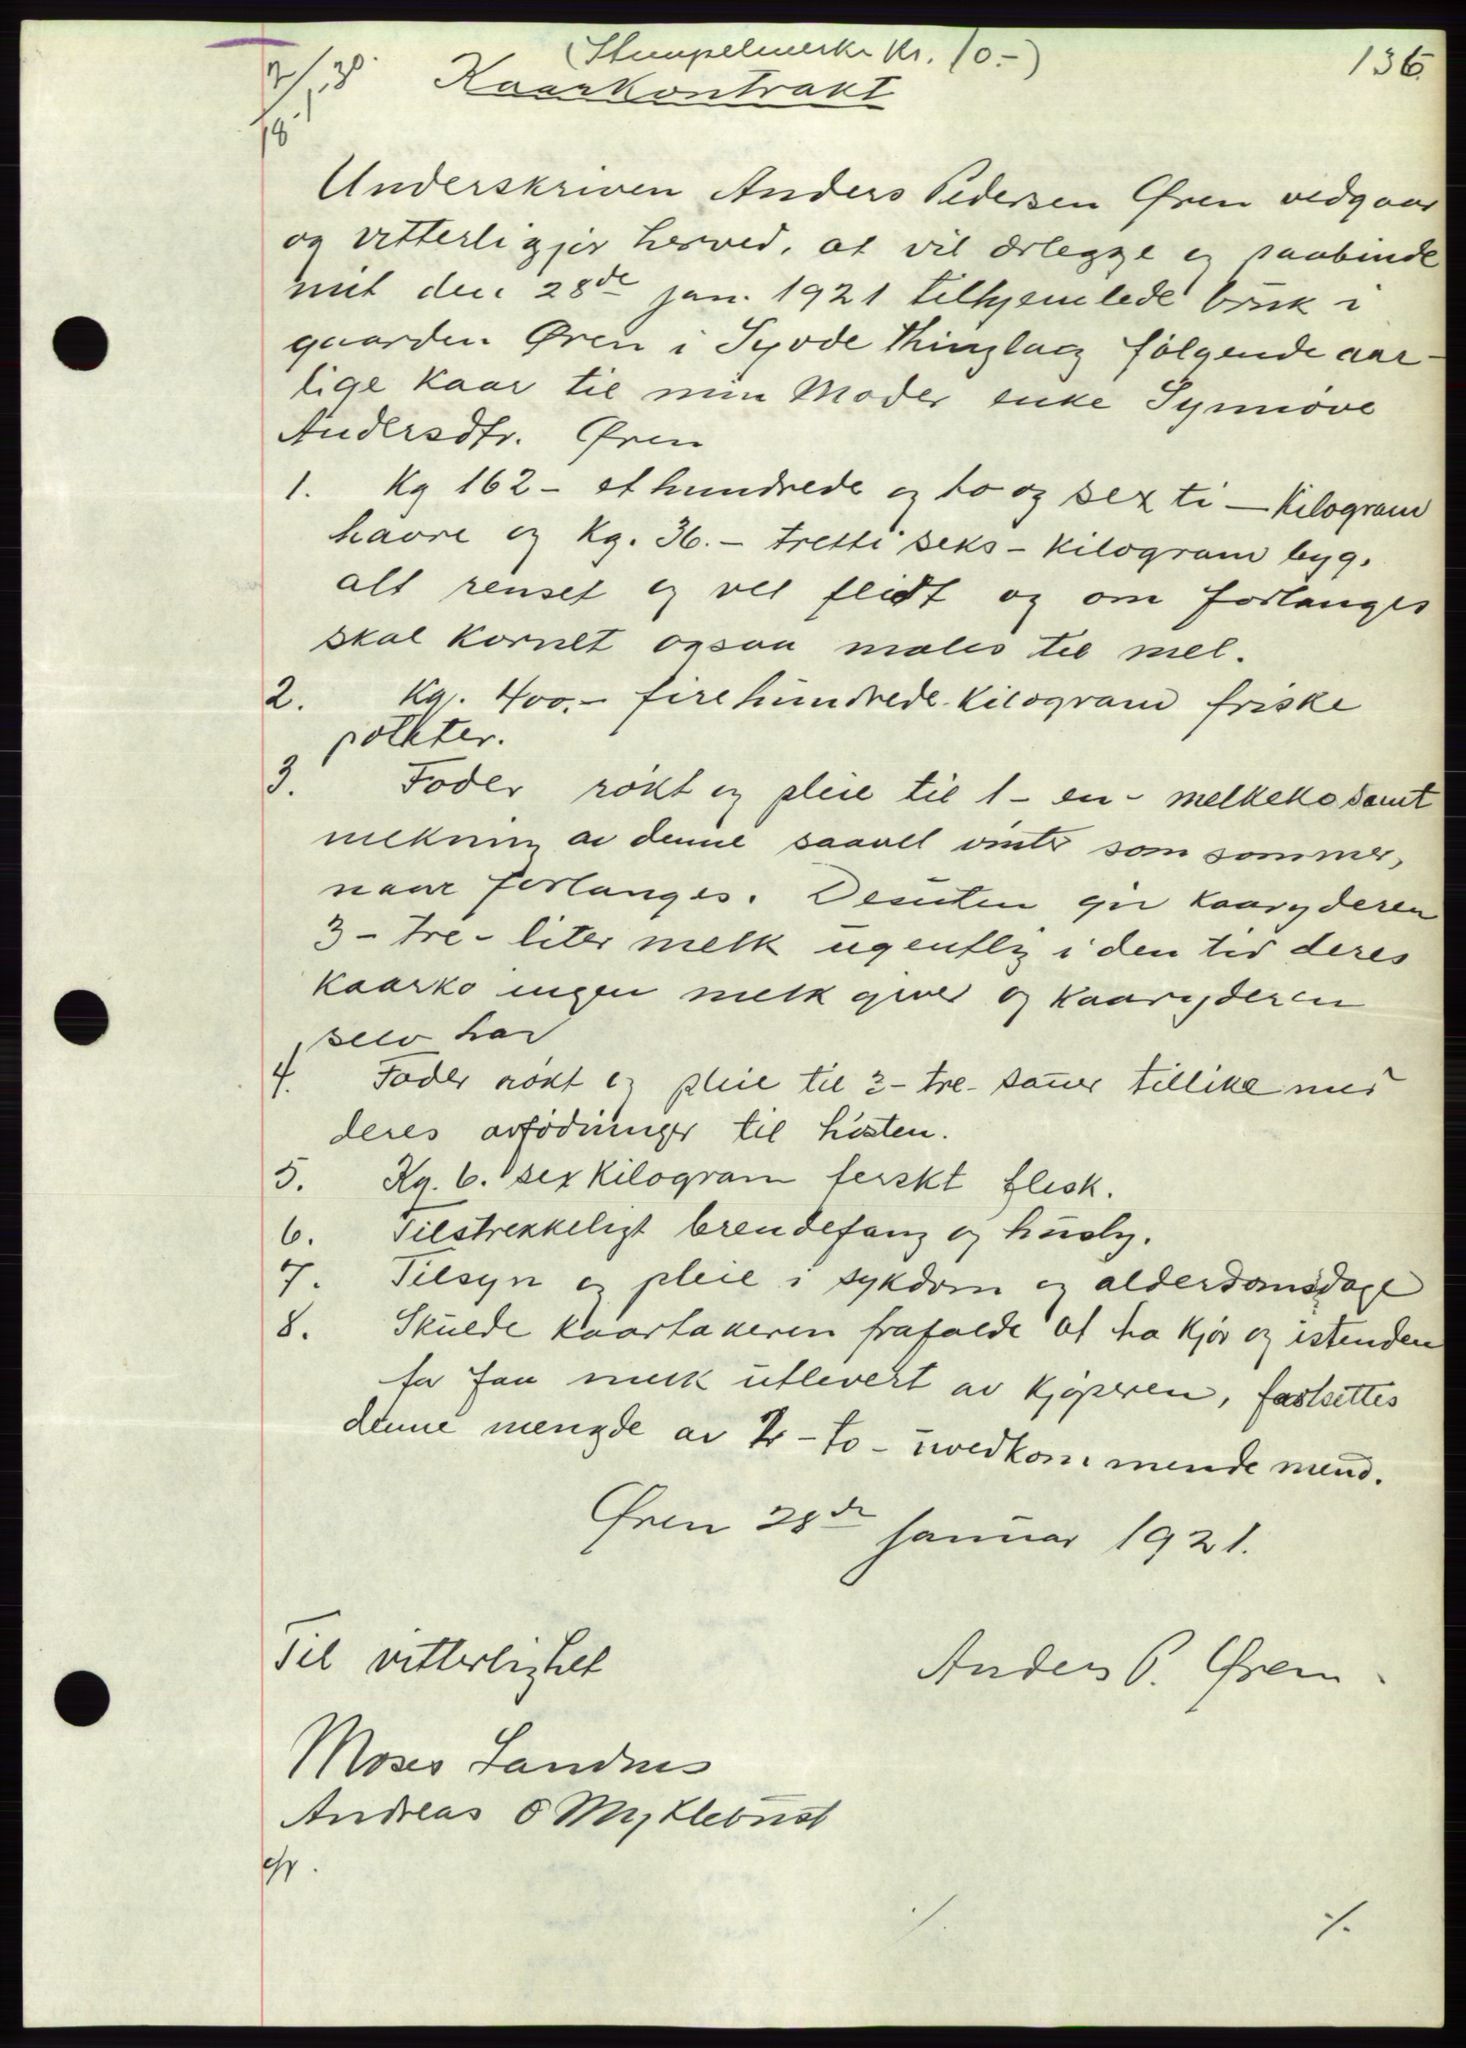 (Stempelmerke Kr. 10.-)
136
2/30.
18/1
Kaarkontrakt
Underskriven Anders Pedersen Øren vedgaar
og vitterliggjør herved, at vil erlegge og paabinde
mit den 28de jan. 1921 tilhjemlede bruk i
gaarden Øren i Syvde Thinglag følgende aar-
lige Kaar til min Moder enke Synnøve
Andersdtr. Øren
1. Kg 162 - et hundrede og to og sexti - Kilogram
havre og Kg. 36. - tretti seks - Kilogram byg.
alt renset og vel flidt og om forlanges
skal Kornet ogsaa males til mel.
2. Kg. 400.- firehundrede Kilogram friske
poteter.
3. Foder røkt og pleie til 1 - en - melkeko samt
melkning av denne saavel vinter som sommer,
naar forlanges. Desuten gir Kaaryderen
3 - tre - liter melk ugentlig i den tid deres
Kaarko ingen melk giver og Kaaryderen
selv har
4. Foder røkt og pleie til 3 - tre - sauer tillike med
deres avfødninger til høsten.
5. Kg. 6. sex Kilogram ferskt flesk.
6. Tilstrekkeligt brendefang og husly.
7. Tilsyn og pleie i sykdom og alderdomsdage
8. Skulde Kaartakeren frafalde at ha Kjør og istenden
for faa melk utlevert av Kjøperen, fastsettes
denne mengde av 2 - to - uvedkommende mend.
Øren 28de januar 1921.
Til vitterlighet
Anders P. Øren
Moses Landnes
Andreas O Myklebust
./.